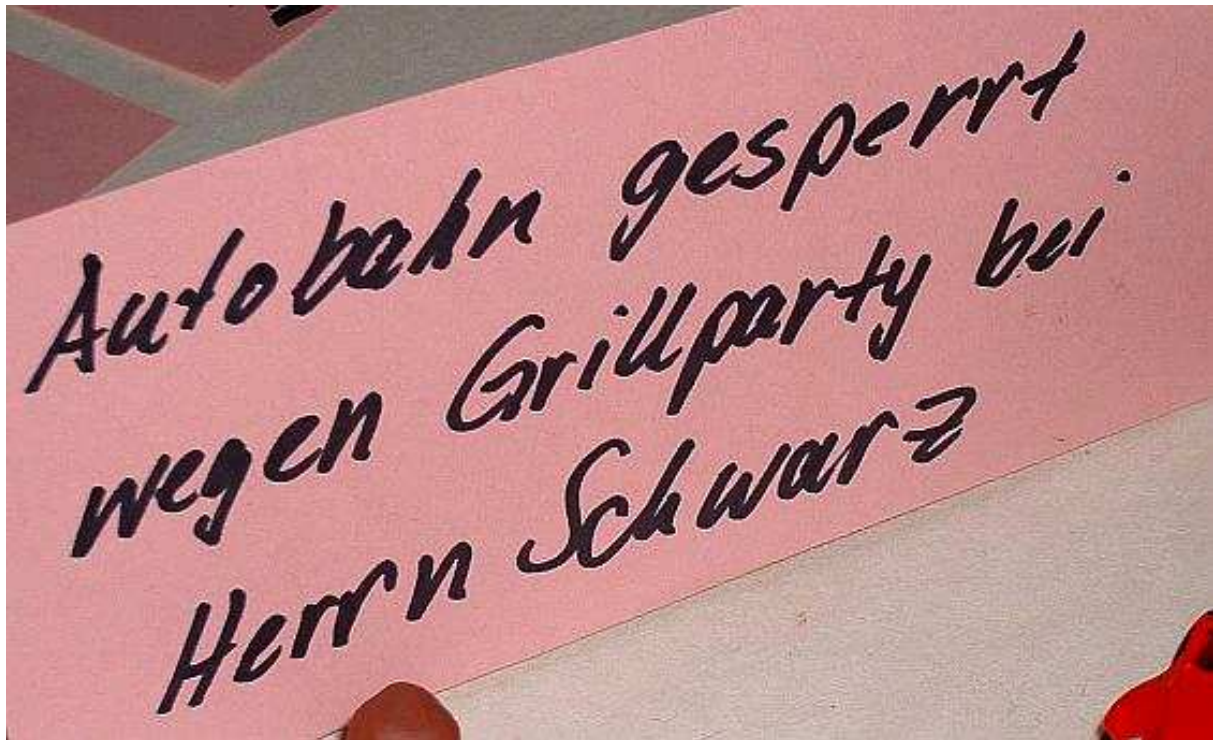 Autobahn gesperrt
wegen Grillparty bei
Herrn Schwarz